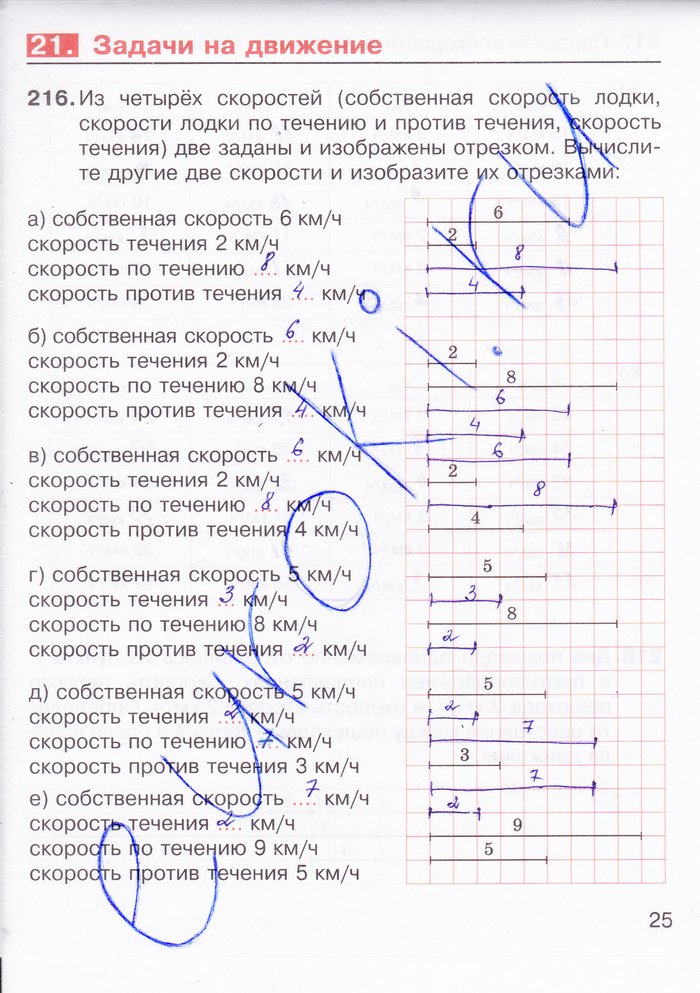 21. Задачи на движение
216. Из четырёх скоростей (собственная скорость лодки,
скорости лодки по течению и против течения, скорость
течения) две заданы и изображены отрезком. Вычисли-
те другие две скорости и изобразите их отрезками:
а) собственная скорость 6 км/ч
6
скорость течения 2 км/ч
2
скорость по течению 8 км/ч
8
скорость против течения 4 км/ч
4
б) собственная скорость 6 км/ч
скорость течения 2 км/ч
2
скорость по течению 8 км/ч
8
6
скорость против течения 4 км/ч
4
в) собственная скорость 6 км/ч
6
скорость течения 2 км/ч
2
скорость по течению 8 км/ч
8
скорость против течения 4 км/ч
4
г) собственная скорость 5 км/ч
5
скорость течения 3 км/ч
3
скорость по течению 8 км/ч
8
скорость против течения 2 км/ч
2
д) собственная скорость 5 км/ч
5
скорость течения 2 км/ч
2
скорость по течению 7 км/ч
7
скорость против течения 3 км/ч
3
е) собственная скорость 7 км/ч
7
скорость течения 2 км/ч
2
скорость по течению 9 км/ч
9
скорость против течения 5 км/ч
5
25